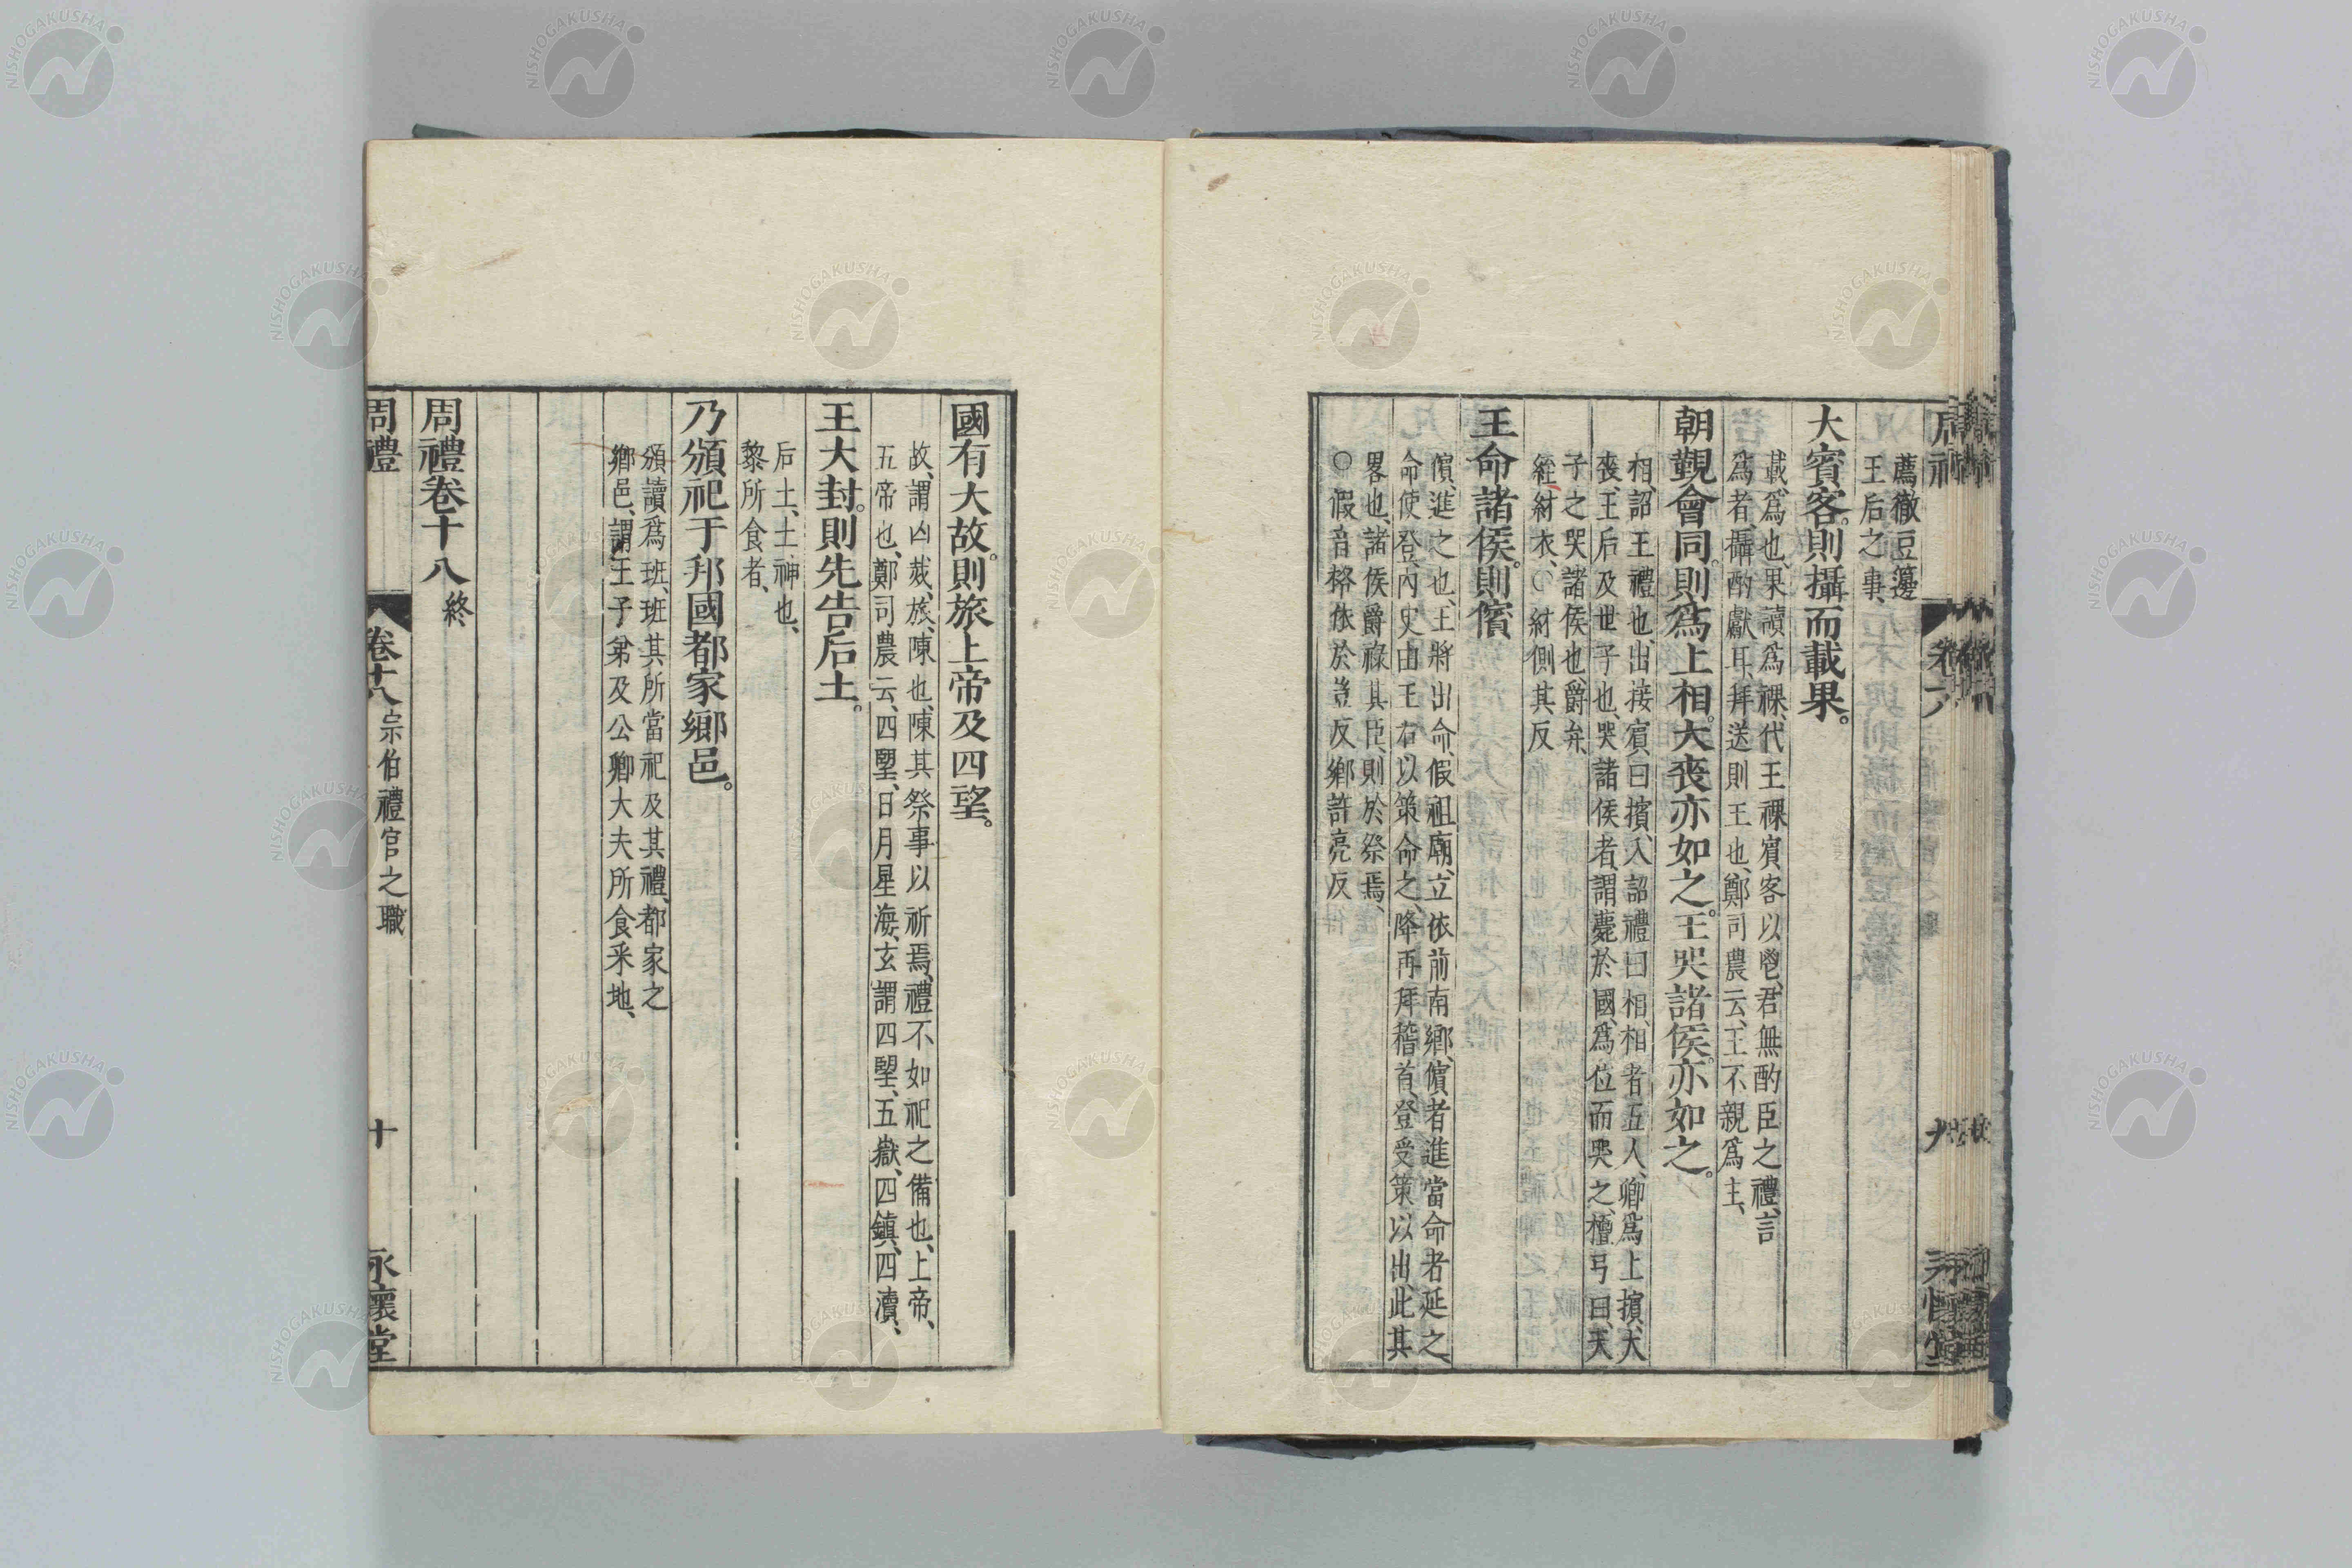 薦徹豆籩
王后之事、
大賓客。則攝而載果。
載、爲也、果讀爲祼、代王祼賓客以鬯、君無酌臣之禮、言
爲者攝酌獻耳、拜送則王也、鄭司農云、王不親爲主、
朝覲會同。則爲上相。大喪亦如之。王哭諸侯。亦如之。
相、詔王禮也、出接賓、曰擯、入詔禮曰相、相者五人、卿爲上擯、大
喪、王后及世子也、哭諸侯者、謂薨於國、爲位而哭之、檀弓曰、天
子之哭諸侯也、爵弁、
絰紂衣、○紂側其反
王命諸侯。則儐
儐、進之也、王將出命、假祖廟、立依前南鄉、儐者進當命者延之、
命使登、內史由王右以策命之、降再拜稽首、登受策以出、此其
畧也、諸侯爵祿其臣、則於祭焉、
○假音格依於豈反鄉許亮反
國有大故。則旅上帝及四望。
故、謂凶烖、旅、陳也、陳其祭事以祈焉、禮不如祀之備也、上帝、
五帝也、鄭司農云、四望、日月星海、玄謂四望、五嶽、四鎮、四瀆、
王大封。則先告后土。
后土、土神也、
黎所食者、
乃頒祀于邦國都家鄉邑。
頒讀爲班、班其所當祀及其禮、都家之
鄉邑、謂王子弟及公卿大夫所食采地、
周禮卷十八 終
周禮 卷十八 宗伯禮官之職 十 永懷堂